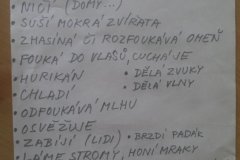 NIČÍ (DOMY...)
• SUŠÍ MOKRÁ ZVÍŘATA
• ZHASÍNÁ ČI ROZFOUKÁVÁ OHEŇ
• FOUKÁ DO VLASŮ, CUCHÁ JE
• HURIKÁN • DĚLÁ ZVUKY
• CHLADÍ • DĚLÁ VLNY
• ODFOUKÁVÁ MLHU
• OSVĚŽUJE
• ZABÍJÍ (LIDI) • BRZDÍ PADÁK
• LÁME STROMY, HONÍ MRAKY